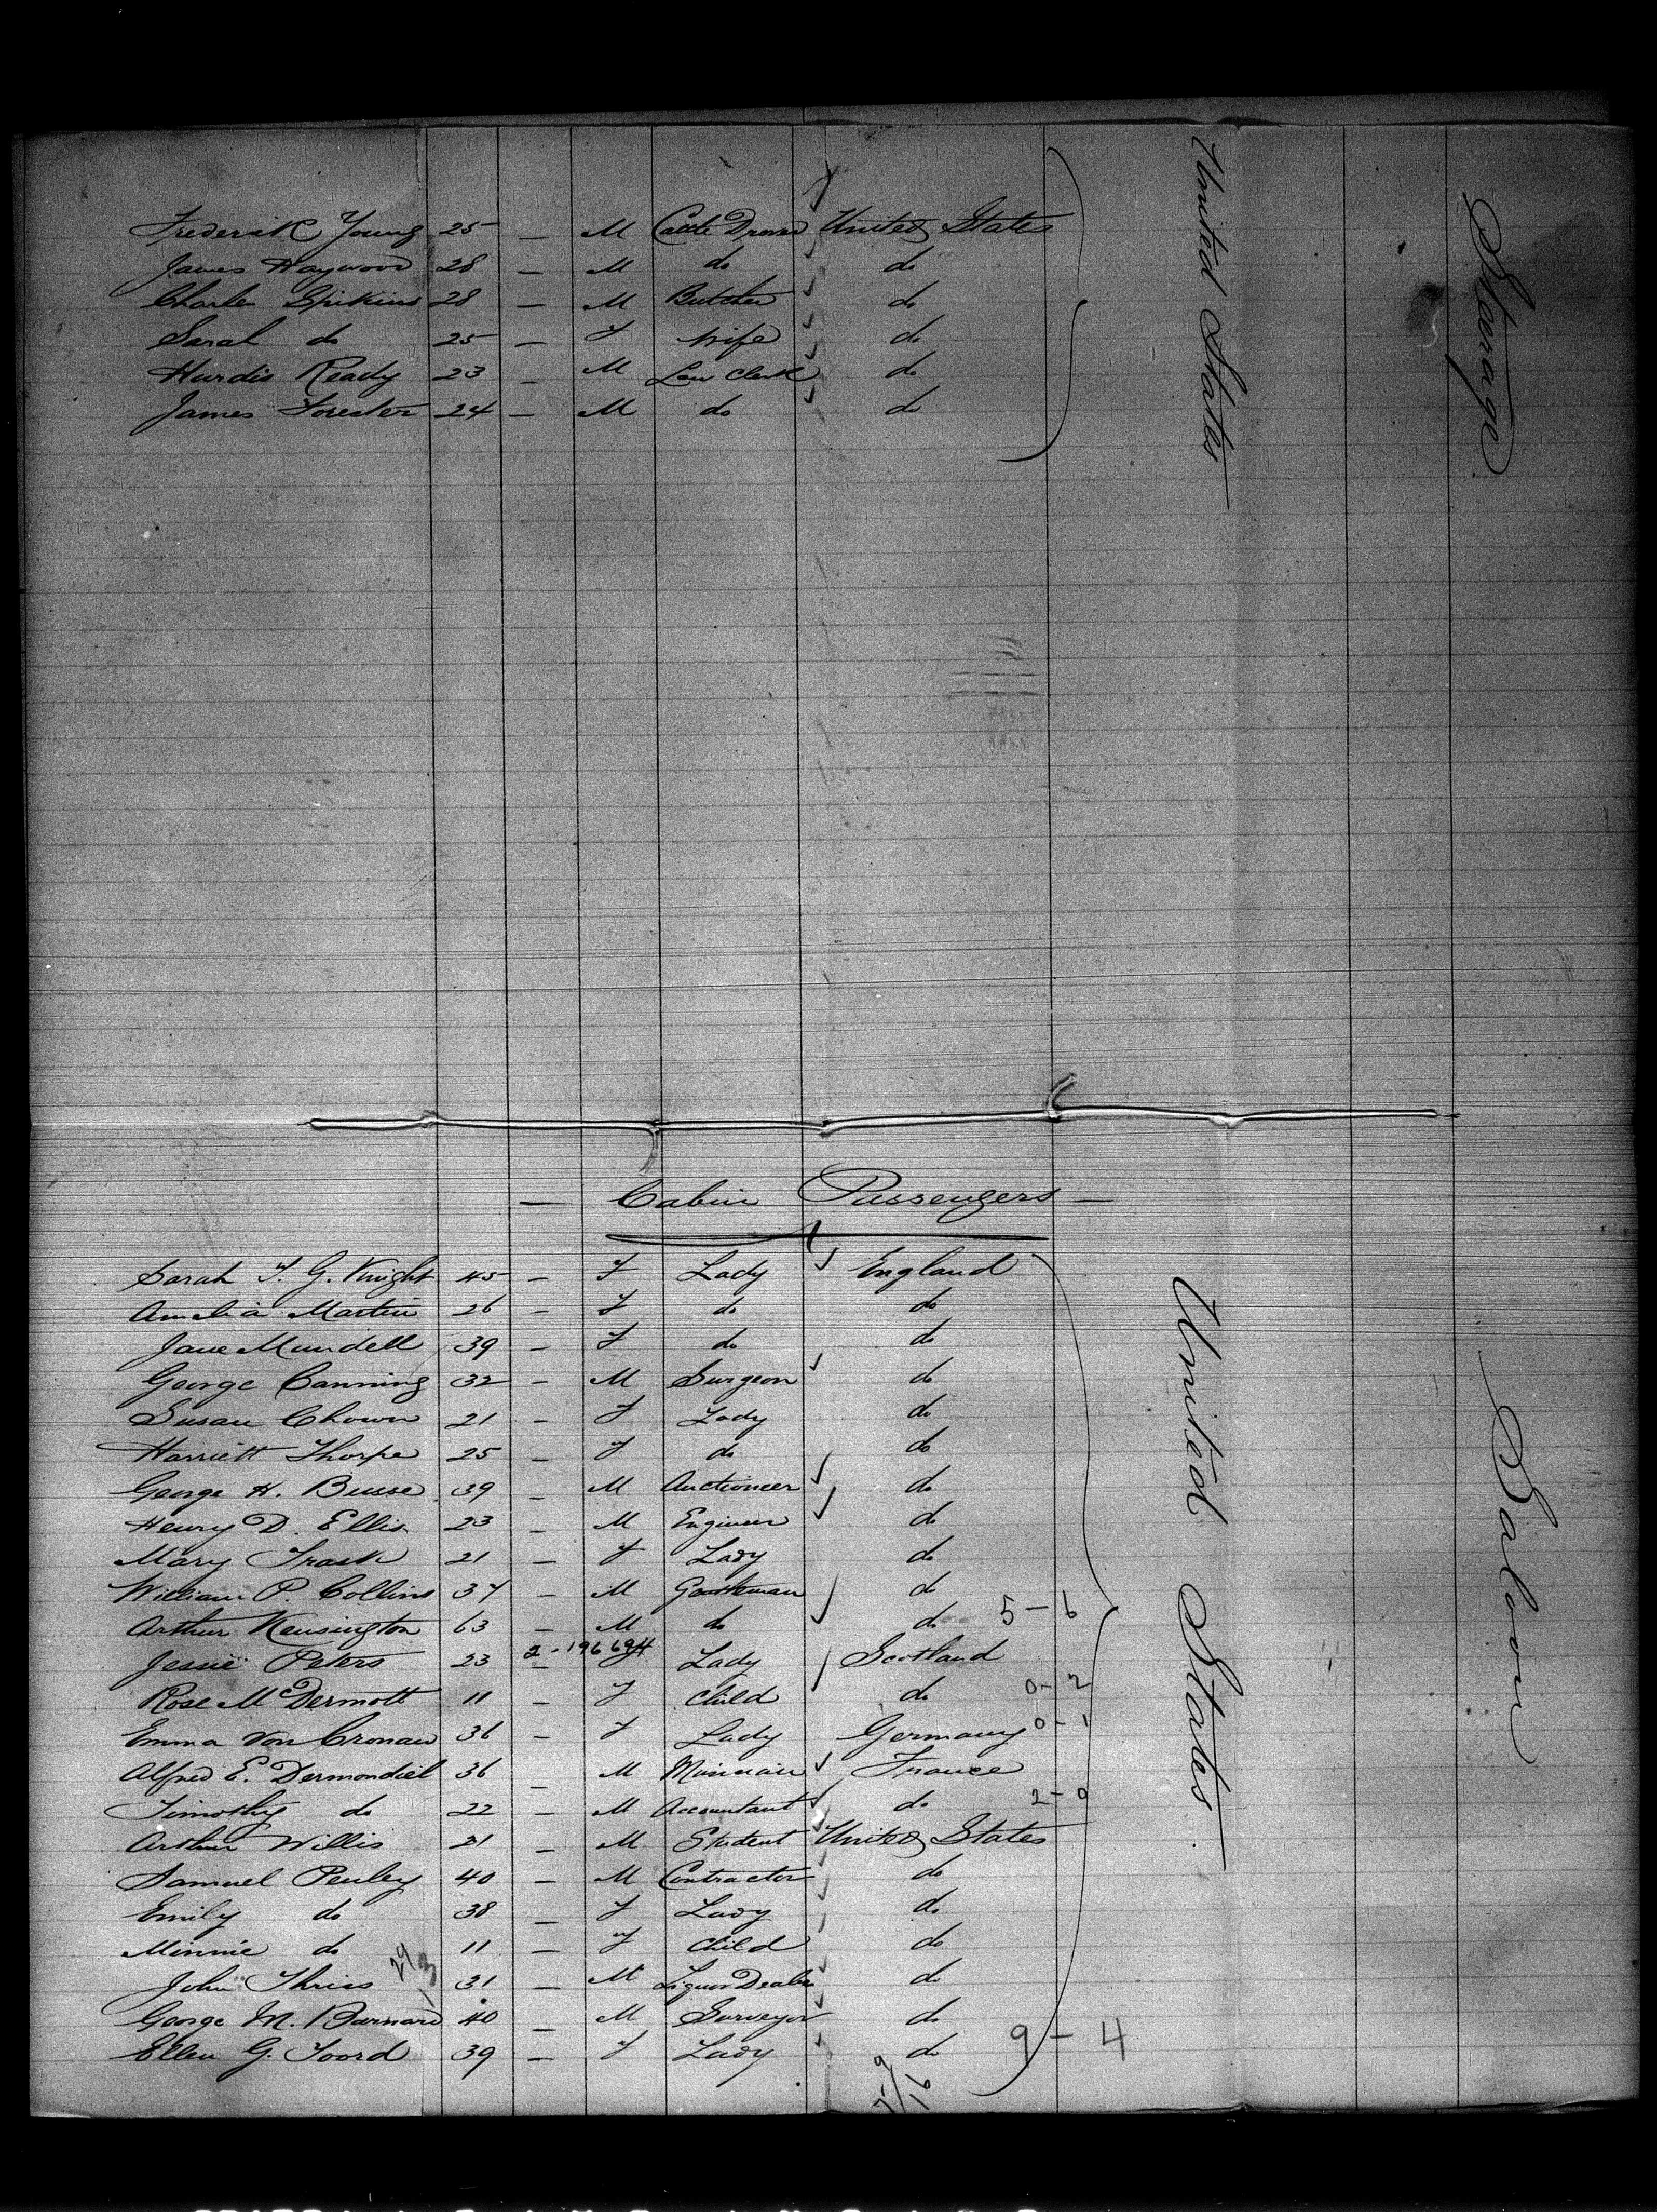 Frederick Young 25 — M Cattle Drover United States
James Haywood 28 — M do do
Charles Spikins 28 — M Butcher do
Sarah do 25 — F Wife do
Hurdis Ready 23 — M Law Clerk do
James Forester 24 — M do do
United States
Steerage
— Cabin Passengers —
Sarah T. G. Knight 45 — F Lady England
Amelia Martin 26 — F do do
Jane Mundell 39 — F do do
George Canning 32 — M Surgeon do
Susan Chown 21 — F Lady do
Harriett Thorpe 25 — F do do
George H. Busse 39 — M Auctioneer do
Henry D. Ellis 23 — M Engineer do
Mary Trask 21 — F Lady do
William P. Collins 37 — M Gentleman do
Arthur Kensington 63 — M do do 5 - 6
Jessie Peters 23 — F Lady Scotland
Rose McDermott 11 — F Child do 0 - 2
Emma Von Cronau 36 — F Lady Germany 0 - 1
Alfred E. Dermondiel 36 — M Musician France
Timothy do 22 — M Accountant do 2 - 0
Arthur Willis 21 — M Student United States
Samuel Penley 40 — M Contractor do
Emily do 38 — F Lady do
Minnie do 11 — F Child do
John Thriss 31 — M Liquor Dealer do
George M. Barnard 40 — M Surveyor do
Ellen G. Foord 39 — F Lady do 9 - 4
United States
Saloon